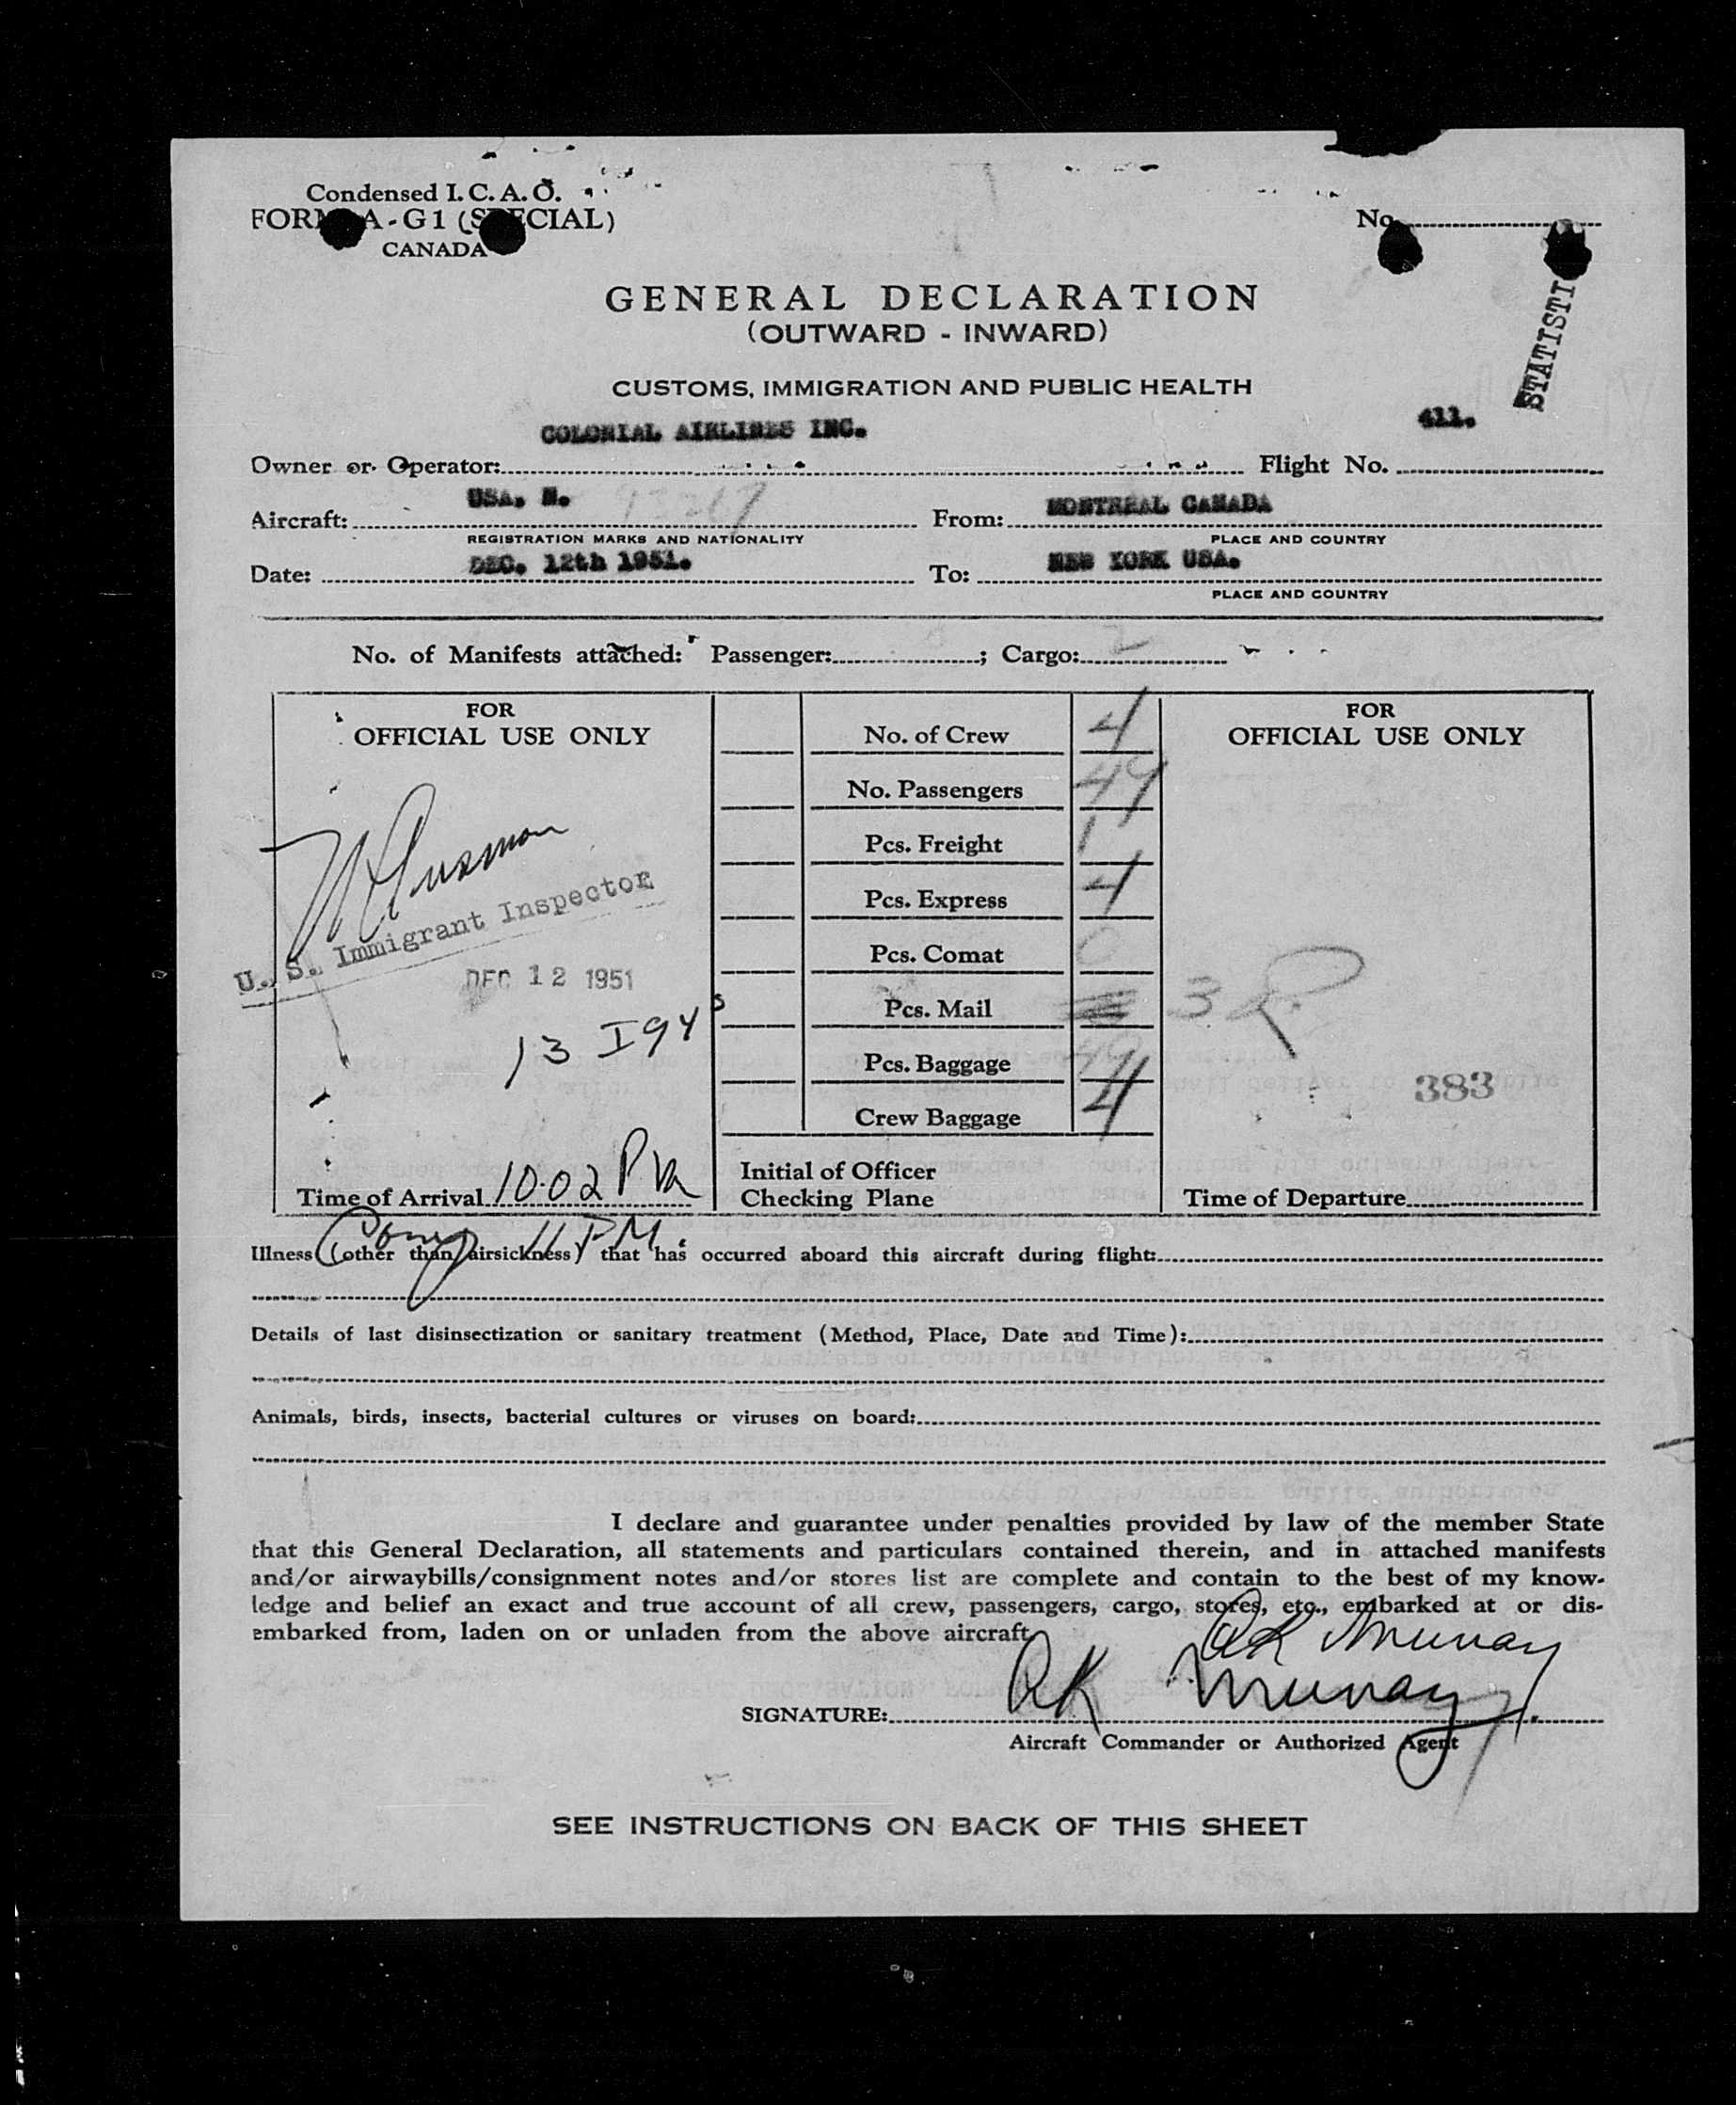 Condensed I. C. A. O.
FORM A-G1 (SPECIAL)
CANADA
No.
STATISTI
GENERAL DECLARATION
(OUTWARD - INWARD)
CUSTOMS, IMMIGRATION AND PUBLIC HEALTH
COLONIAL AIRLINES INC. 411.
Owner or Operator: Flight No.
USA. N. MONTREAL CANADA
Aircraft: From:
REGISTRATION MARKS AND NATIONALITY PLACE AND COUNTRY
DEC. 12th 1951. NEW YORK USA.
Date: To:
PLACE AND COUNTRY
No. of Manifests attached: Passenger: ; Cargo: 2
FOR
OFFICIAL USE ONLY
U. S. Immigrant Inspector
DEC 12 1951
13 I94s
Time of Arrival 10.02 PM
No. of Crew 4
No. Passengers 49
Pcs. Freight 1
Pcs. Express 4
Pcs. Comat 0
Pcs. Mail 3
Pcs. Baggage
Crew Baggage 4
Initial of Officer
Checking Plane
FOR
OFFICIAL USE ONLY
383
Time of Departure
11 PM
Illness (other than airsickness) that has occurred aboard this aircraft during flight:
Details of last disinsectization or sanitary treatment (Method, Place, Date and Time):
Animals, birds, insects, bacterial cultures or viruses on board:
I declare and guarantee under penalties provided by law of the member State
that this General Declaration, all statements and particulars contained therein, and in attached manifests
and/or airwaybills/consignment notes and/or stores list are complete and contain to the best of my know-
ledge and belief an exact and true account of all crew, passengers, cargo, stores, etc., embarked at or dis-
embarked from, laden on or unladen from the above aircraft.
RK Murray
SIGNATURE: RK Murray
Aircraft Commander or Authorized Agent
SEE INSTRUCTIONS ON BACK OF THIS SHEET